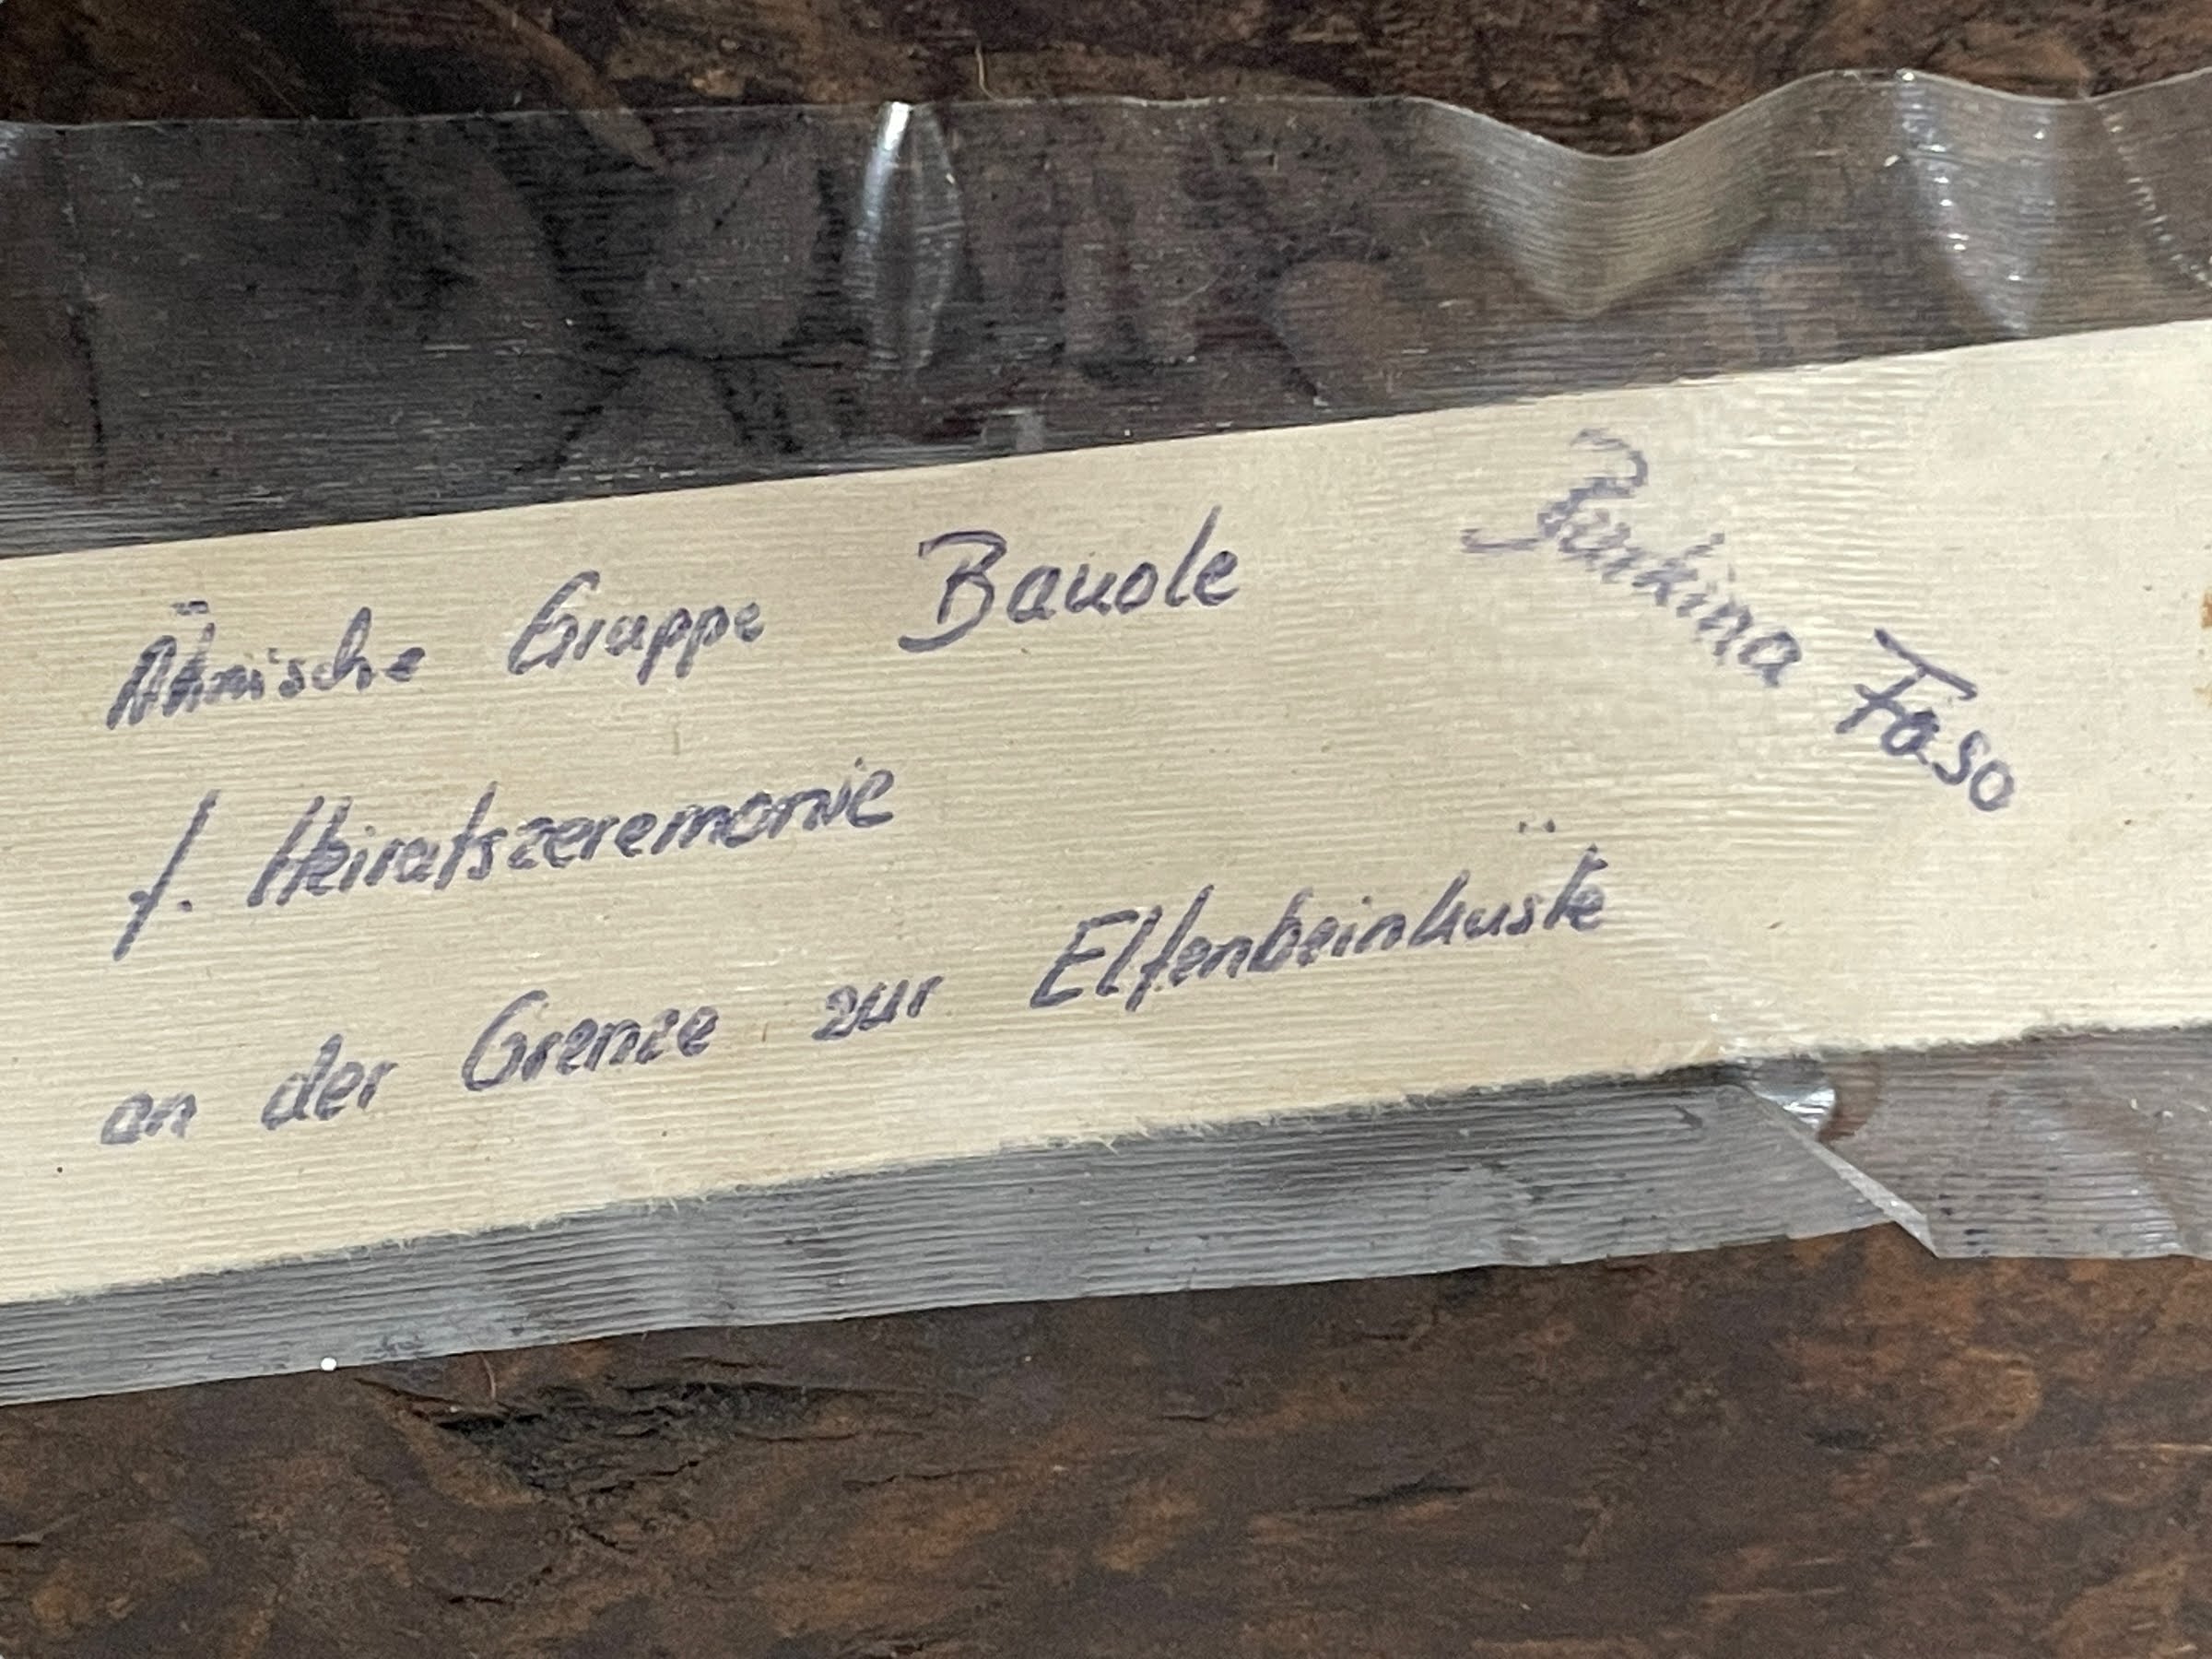 Ätnische Gruppe Bauole
f. Heiratszeremonie
an der Grenze zur Elfenbeinküste
Burkina Faso